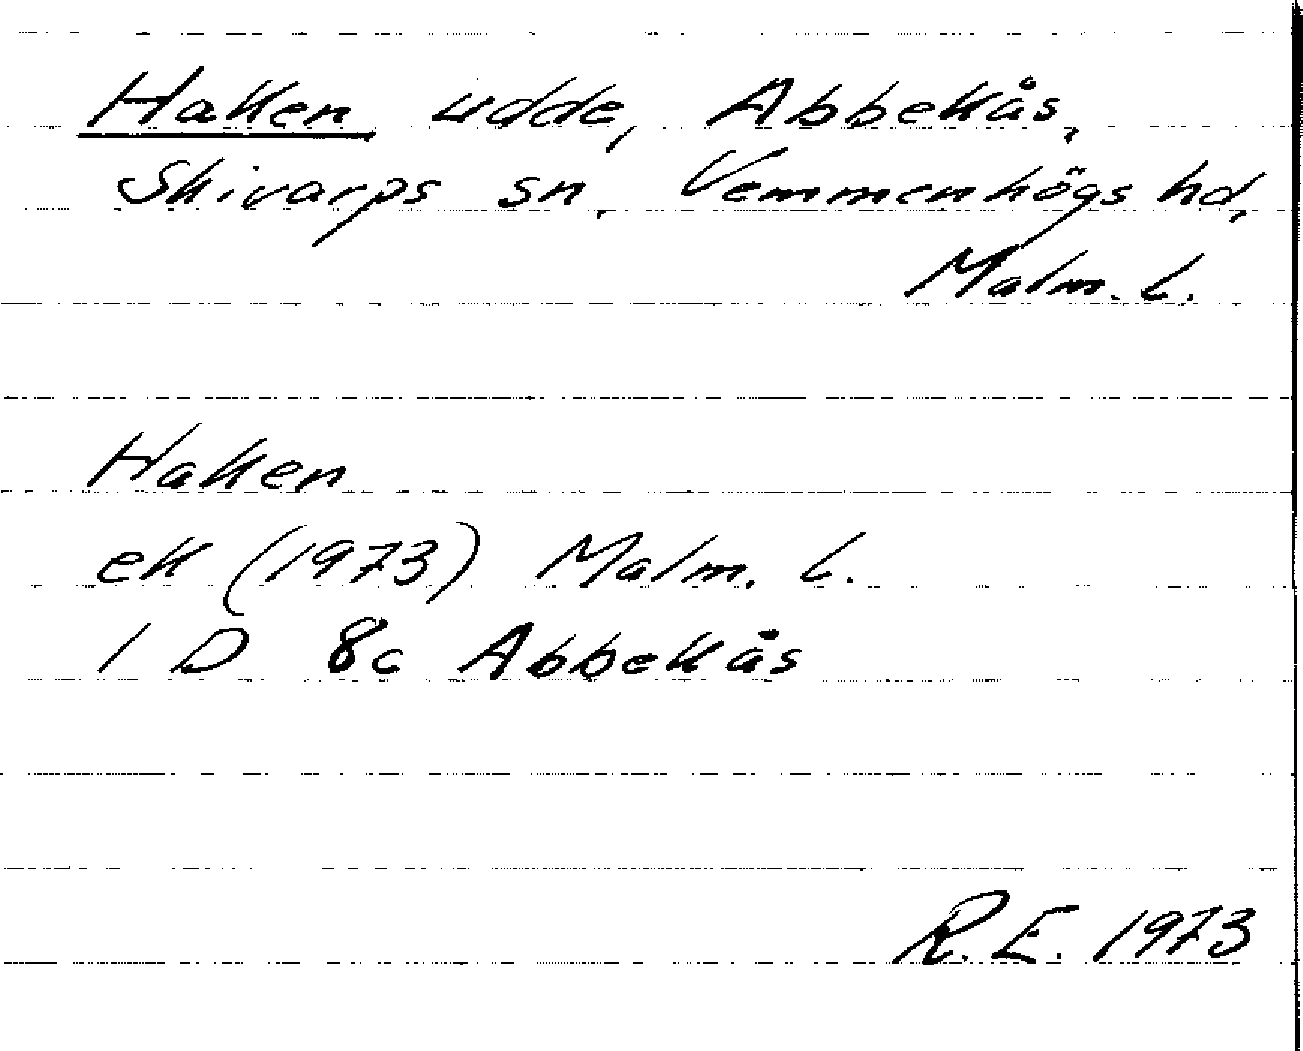 Haken udde, Abbekås,
Skivarps sn. Vemmenhögs hd,
Malm. L.
Haken
ek (1973) Malm. L.
1 D 8c Abbekås
R.E. 1973